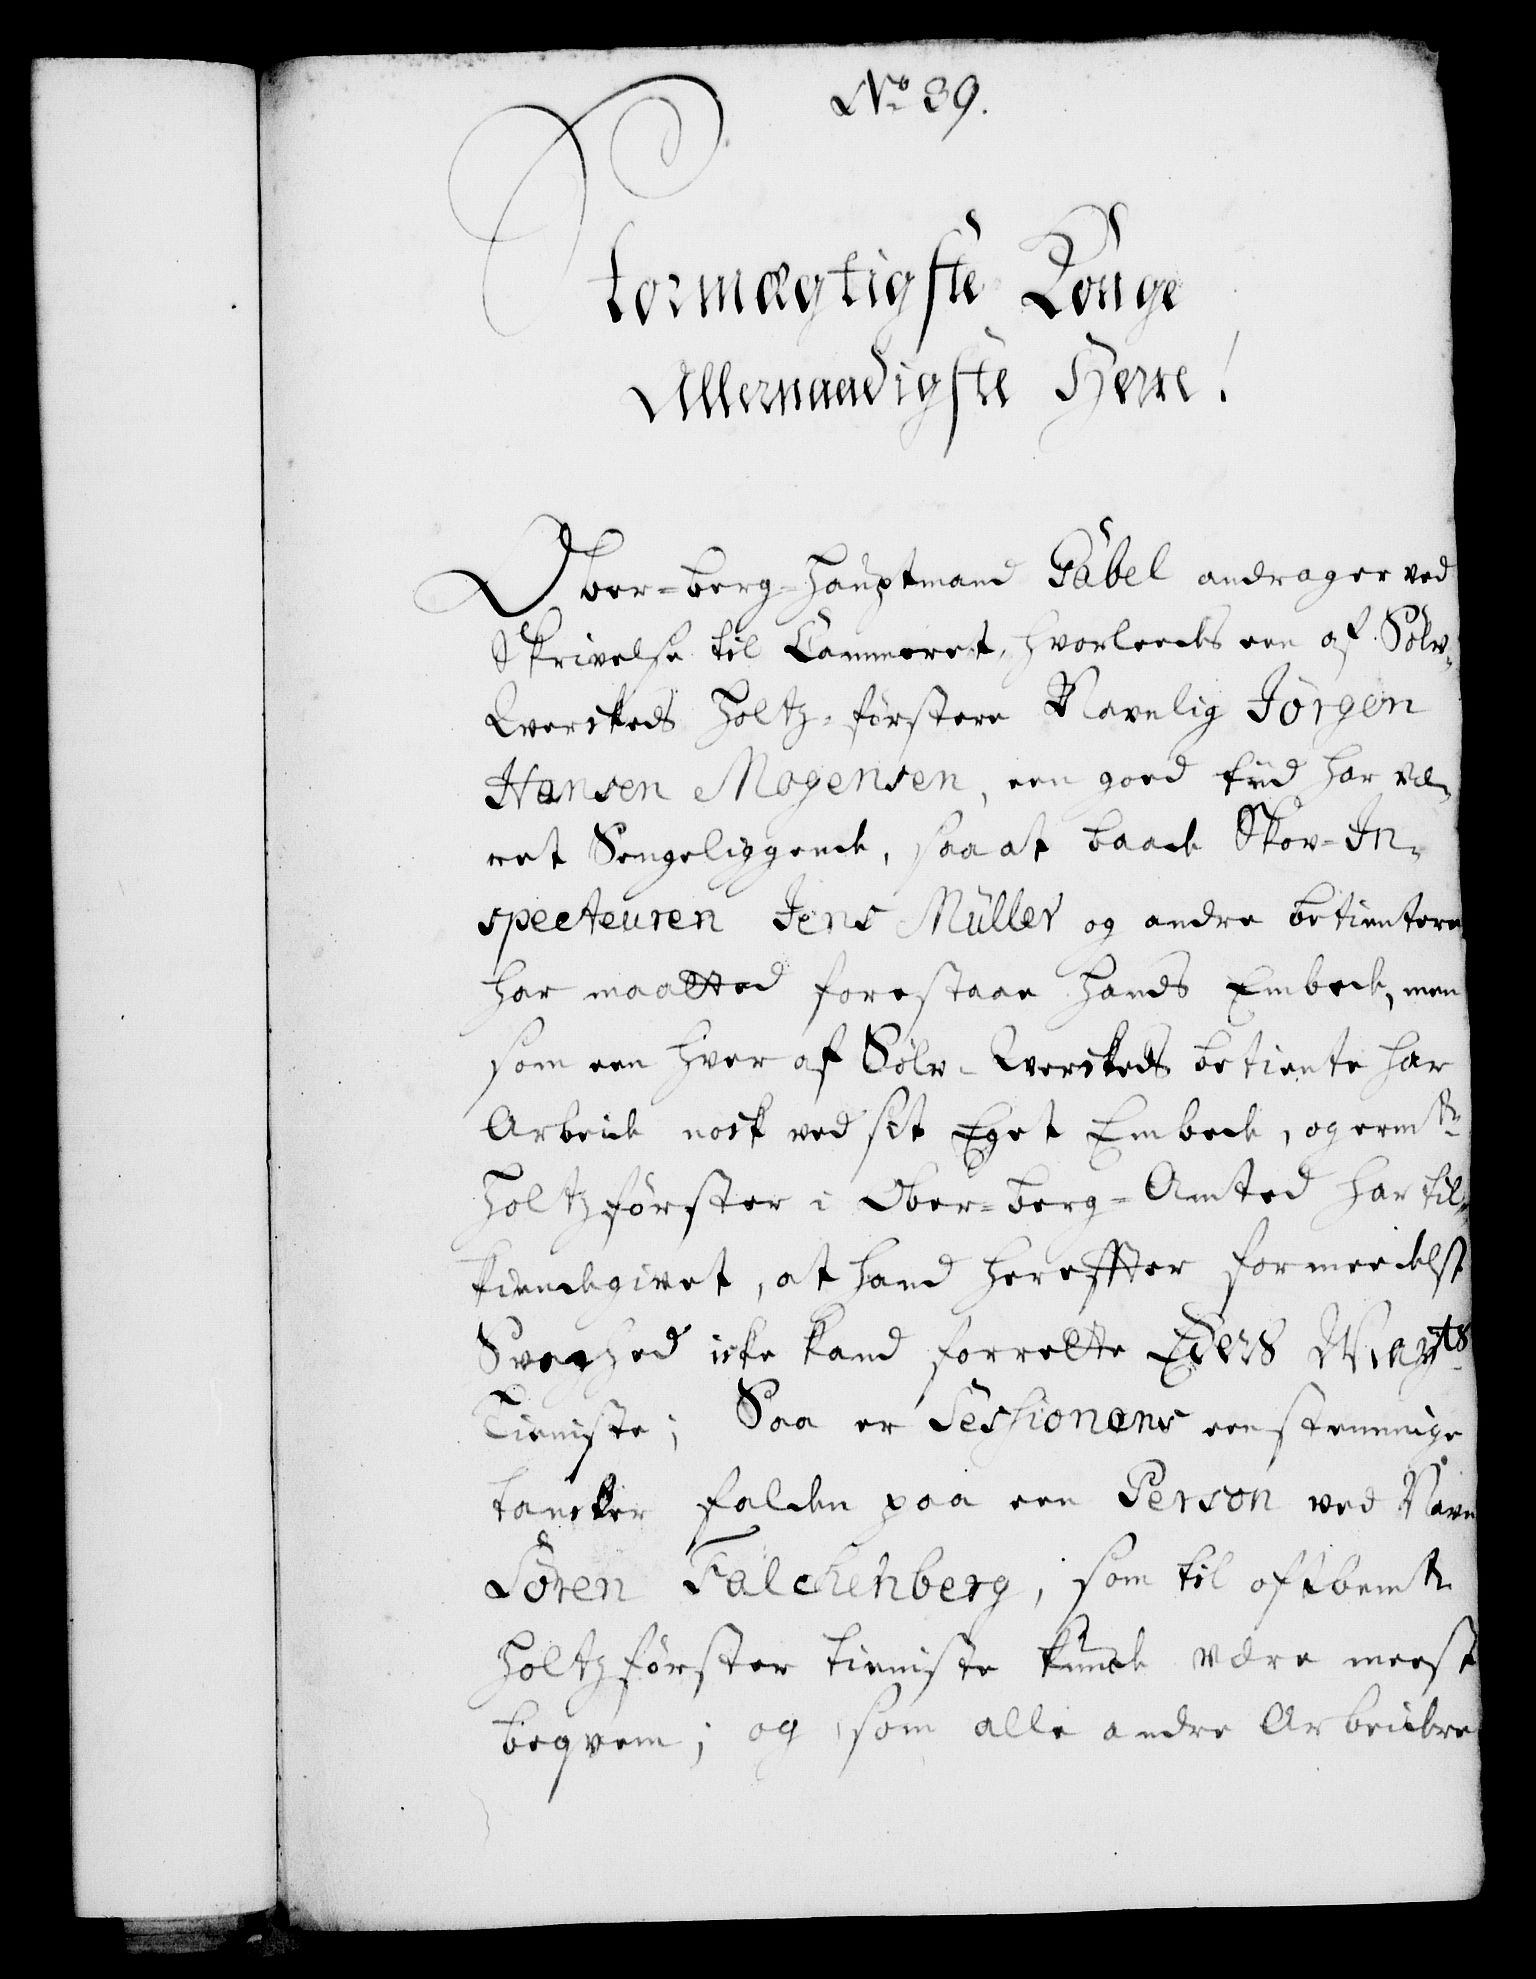 No 39.
Stormægtigste Konge
Allernaadigste Herre!
Ober-berg-Hauptmand Gabel andrager ved
Skrivelse til Cammeret, hvorleedes een af Sølv-
Werckeds Holtz-førstere Navnlig Jørgen
Hansen Mogensen, een goed tiid har væ-
ret Sengeliggende, saa at baade Skov-In-
specteuren Jens Müller og andre betientere
har maatted forestaae hands Embede, men
som een hver af Sølv-Werckeds betiente har
Arbeide nock ved sit Eget Embede, og ermte
Holtzførster i Ober-berg-Amted har til-
kiendegivet, at hand hereffter formeedelst
Svaghed icke kand forrette Eders Mayts
Tieniste; Saa er Sessionens eenstemmige
tancker falden paa een Person ved Navn
Søren Falchenberg, som til oftbemte
Holtzførster tieniste kunde være meest
beqvem; og som alle andre Arbeidere